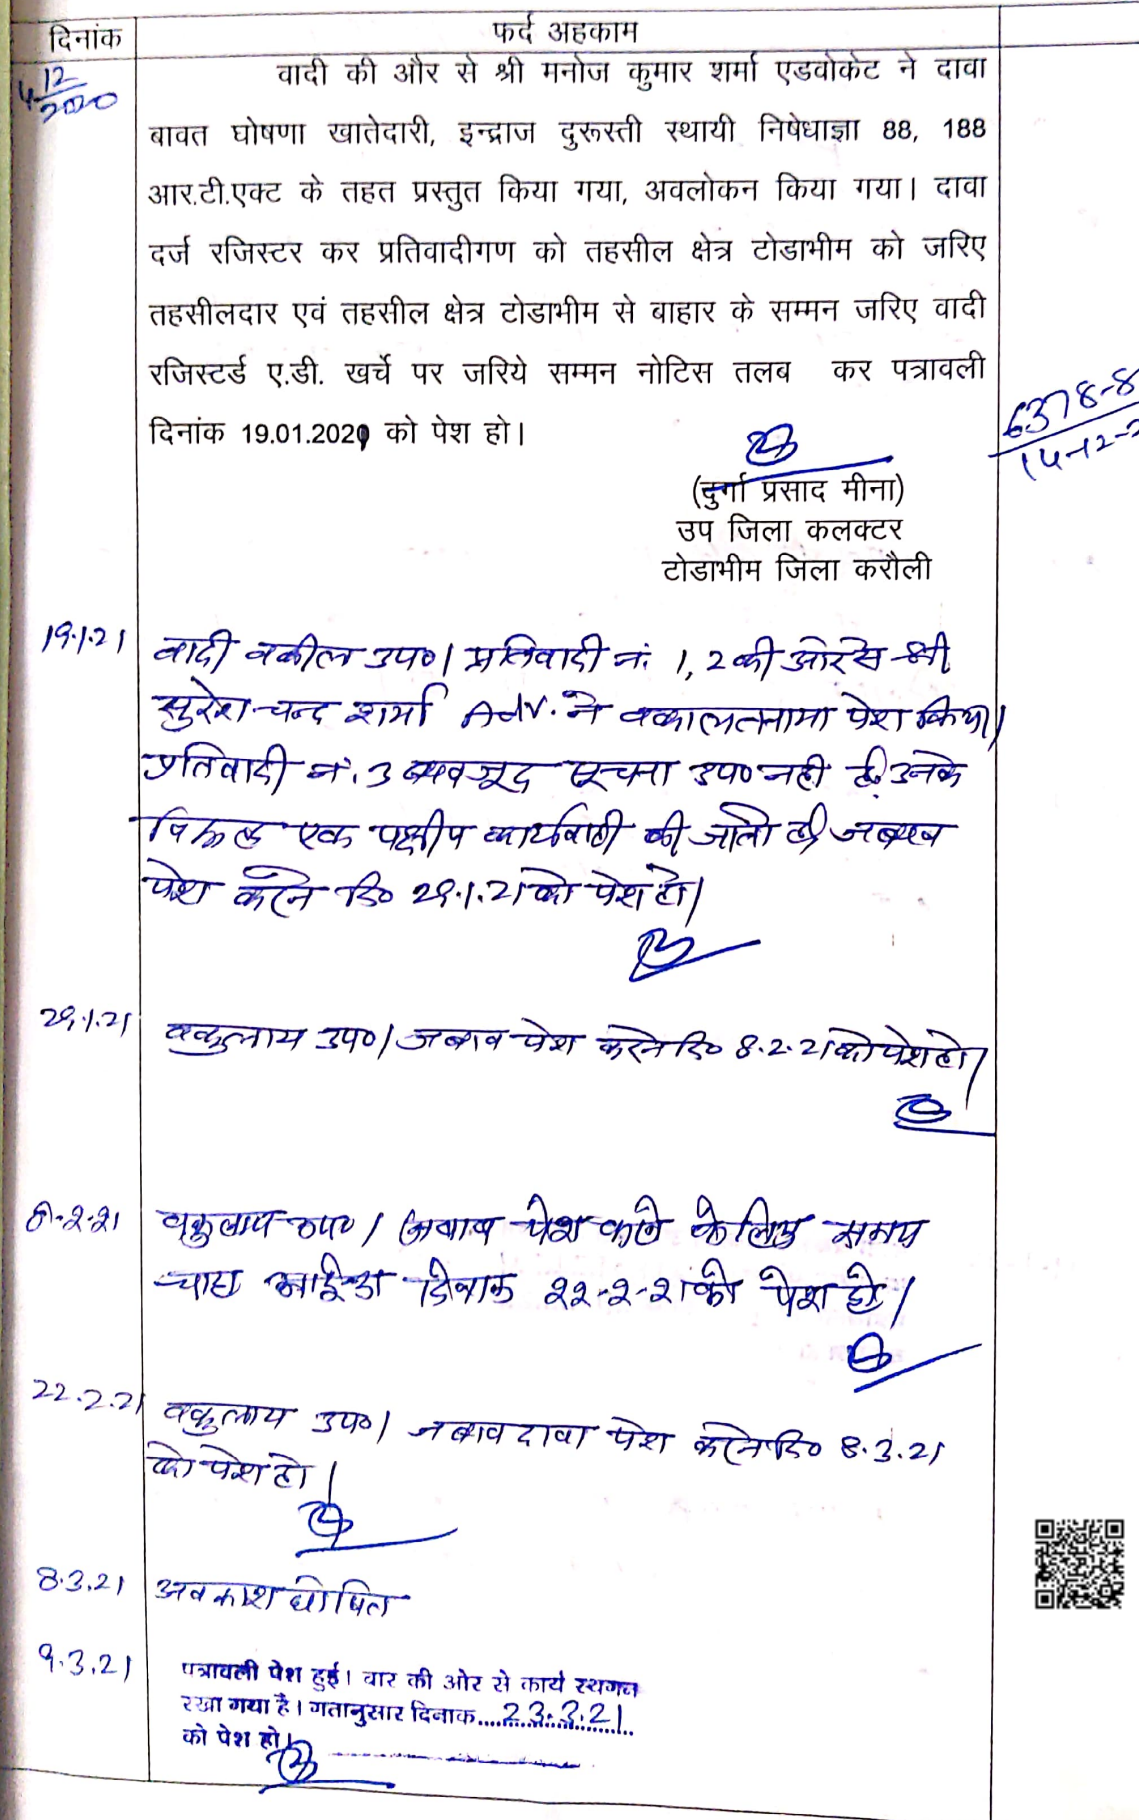 दिनांक
फर्द अहकाम
4/12/2020
वादी की और से श्री मनोज कुमार शर्मा एडवोकेट ने दावा
बावत घोषणा खातेदारी, इन्द्राज दुरूस्ती स्थायी निषेधाज्ञा 88, 188
आर.टी.एक्ट के तहत प्रस्तुत किया गया, अवलोकन किया गया। दावा
दर्ज रजिस्टर कर प्रतिवादीगण को तहसील क्षेत्र टोडाभीम को जरिए
तहसीलदार एवं तहसील क्षेत्र टोडाभीम से बाहार के सम्मन जरिए वादी
रजिस्टर्ड ए.डी. खर्चे पर जरिये सम्मन नोटिस तलब कर पत्रावली
दिनांक 19.01.2021 को पेश हो।
6378-8
14-12-2
(दुर्गा प्रसाद मीना)
उप जिला कलक्टर
टोडाभीम जिला करौली
19.1.21 वादी वकील उप०। प्रतिवादी नं. 1, 2 की ओर से श्री
सुरेश चन्द शर्मा Adv. ने वकालतनामा पेश किया।
प्रतिवादी नं. 3 बावजूद सूचना उप० नही है, उनके
विरूद्ध एक पक्षीय कार्यवाही की जाती है, जबाब
पेश करने दि० 29.1.21 को पेश हो।
29.1.21 वकुलाय उप०। जबाव पेश करने दि० 8.2.21 को पेश हो।
8-2-21 वकुलाय उप०। जबाब पेश करने के लिए समय
चाहा आईन्दा दिनांक 22-2-21 को पेश हो।
22.2.21 वकुलाय उप०। जबाव दावा पेश करने दि० 8.3.21
को पेश हो।
8.3.21 अवकाश घोषित
9.3.21 पत्रावली पेश हुई। वार की ओर से कार्य स्थगन
रखा गया है। गतानुसार दिनाक....23.3.21
को पेश हो।